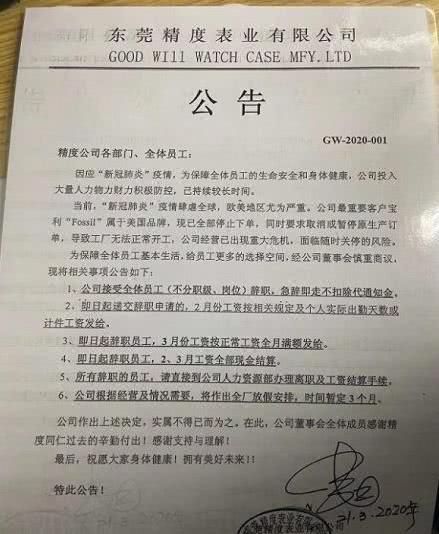 东莞精度表业有限公司
GOOD Will WATCH CASE MFY.LTD
公告
GW-2020-001
精度公司各部门、全体员工：
因应“新冠肺炎”疫情，为保障全体员工的生命安全和身体健康，公司投入
大量人力物力财力积极防控，已持续较长时间。
当前，“新冠肺炎”疫情肆虐全球，欧美地区尤为严重。公司最重要客户宝
利“Fossil”属于美国品牌，现已全部停止下单，同时要求取消或暂停原生产订
单，导致工厂无法正常开工，公司经营已出现重大危机，面临随时关停的风险。
为保障全体员工基本生活，给员工更多的选择空间，经公司董事会慎重商议，
现将相关事项公告如下：
1、公司接受全体员工（不分职级、岗位）辞职，急辞即走不扣除代通知金。
2、即日起递交辞职申请的，2月份工资按相关规定及个人实际出勤天数或
计件工资发给。
3、即日起辞职员工，3月份工资按正常工资全月满额发给。
4、即日起辞职员工，2、3月工资全部现金结算。
5、所有辞职的员工，请直接到公司人力资源部办理离职及工资结算手续。
6、公司根据经营及情况需要，将作出全厂放假安排，时间暂定3个月。
公司作出上述决定，实属不得已而为之。在此，公司董事会全体成员感谢精
度同仁过去的辛勤付出！感谢支持与理解！
最后，祝愿大家身体健康！拥有美好未来！！
特此公告！
31.3.2020年
精度表业有限公司